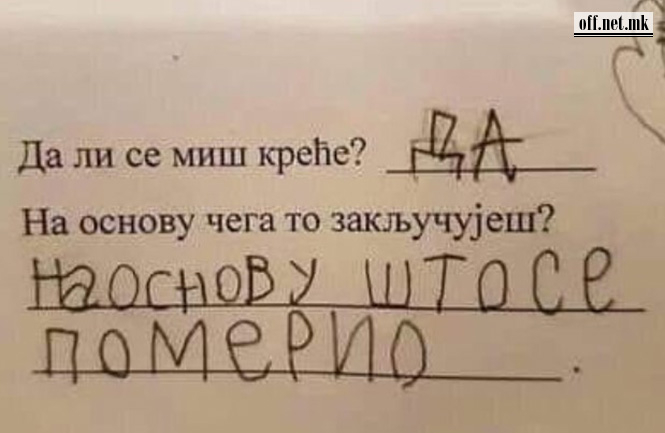 off.net.mk
Да ли се миш креће? ДА
На основу чега то закључујеш?
На основу што се
померио.